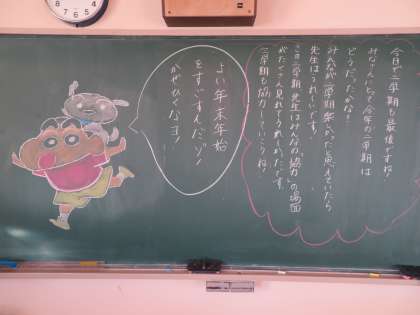 今日で二学期も最後ですね!
みなさんにとって今年の二学期は
どうだったかな?
みんなが二学期楽しかったと思えていたら
先生はうれしいです。
この二学期、先生はみんなの"協力"の場面
がたくさん見れてうれしかったです。
三学期も協力していこうね!
よい年末年始
をすごすんだゾ!
かぜひくなヨ!